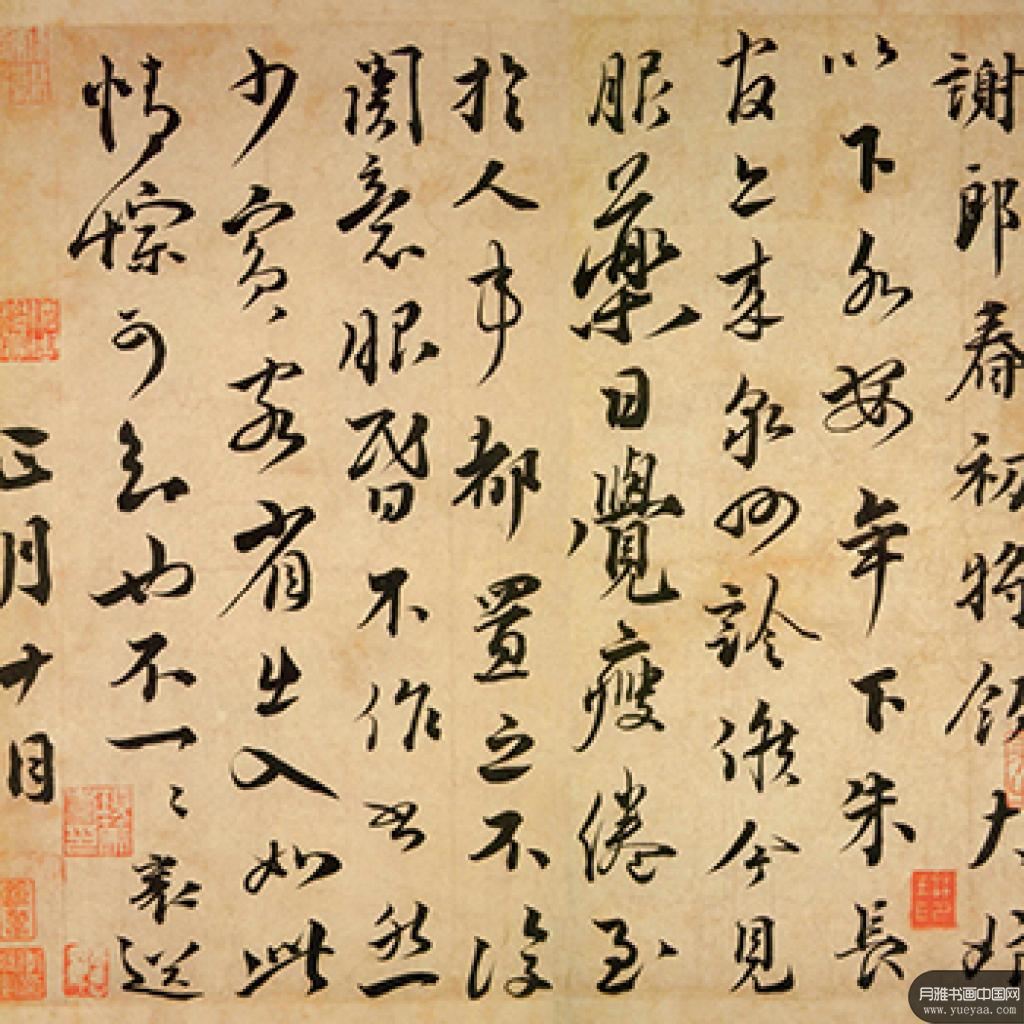 謝郎春初將領大娘
以下各安年下朱長
官亦來泉州診候今見
服藥日覺瘦倦至
於人事都置之不復
關意眼昏不作書然
少賓客省出入如此
情悰可知也不一一 襄送
正月十日
月雅书画中国网
www.yueyaa.com